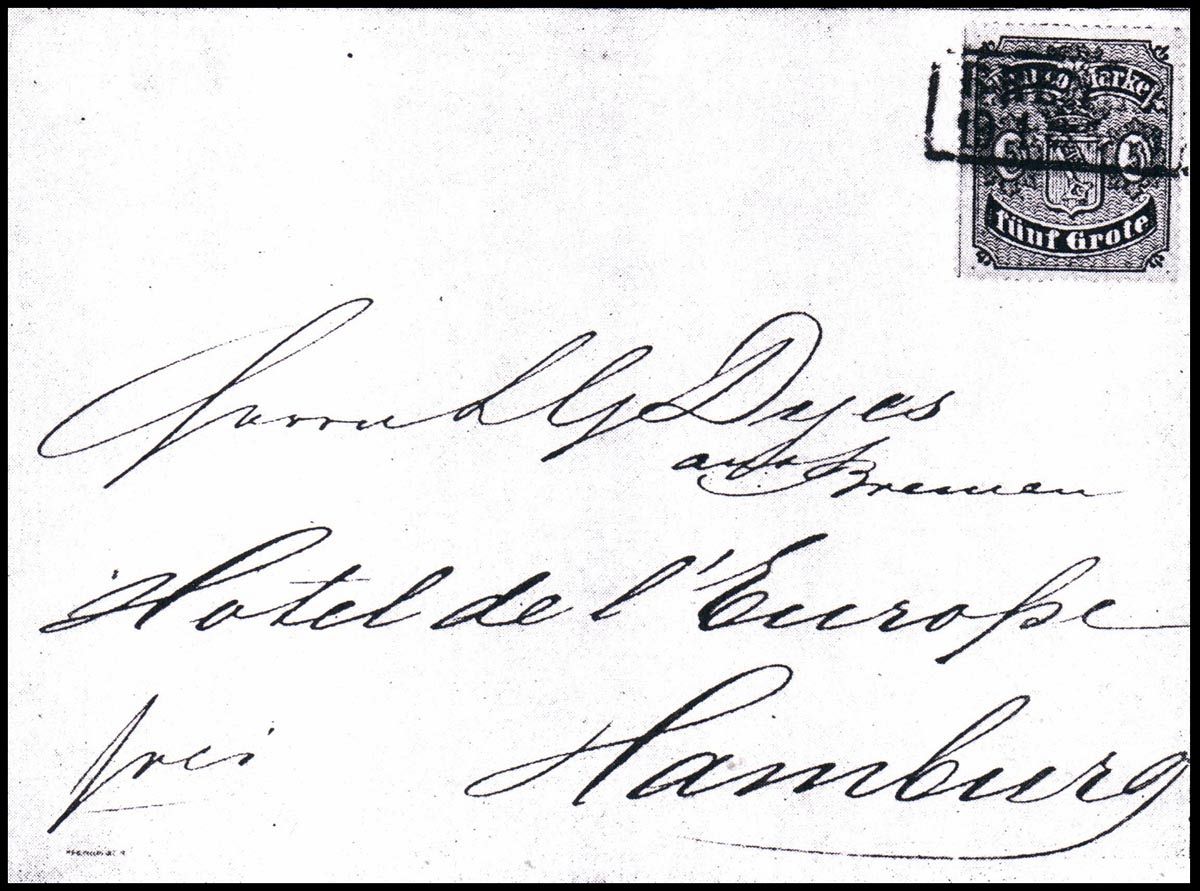 Franco Marke
5 5
fünf Grote
Herrn L G Dyes
aus Bremen
Hotel de l'Europe
frei
Hamburg